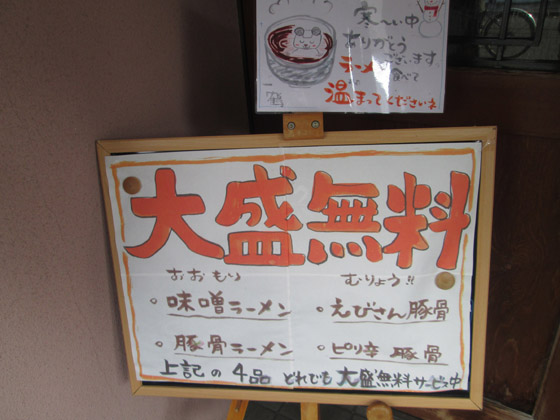 寒〜い中
ありがとう
ございます。
ラーメン食べて
温まってくださいネ
大盛無料
おおもり むりょう!!
・味噌ラーメン ・えびさん豚骨
・豚骨ラーメン ・ピリ辛豚骨
上記の4品 どれでも 大盛無料サービス中